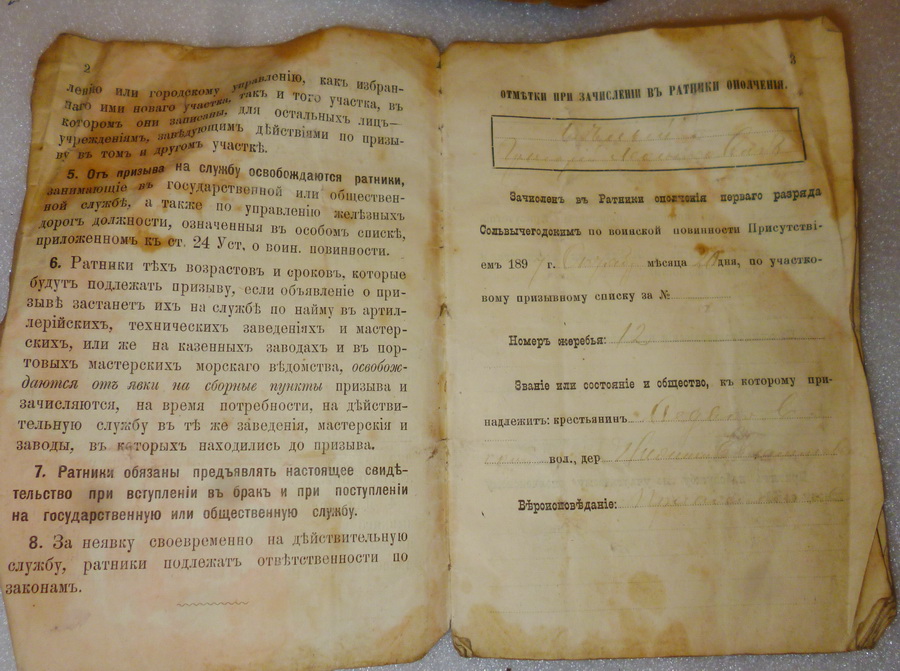 2
ленію или городскому управленію, какъ избран-
наго ими новаго участка, такъ и того участка, въ
которомъ они записаны, для остальныхъ лицъ—
учрежденіямъ, завѣдующимъ дѣйствіями по призы-
ву въ томъ и другомъ участкѣ.
5. Отъ призыва на службу освобождаются ратники,
занимающіе въ государственной или обществен-
ной службѣ, а также по управленію желѣзныхъ
дорогъ должности, означенныя въ особомъ спискѣ,
приложенномъ къ ст. 24 Уст, о воин. повинности.
6. Ратники тѣхъ возрастовъ и сроковъ, которые
будутъ подлежать призыву, если объявленіе о при-
зывѣ застанетъ ихъ на службѣ по найму въ артил-
лерійскихъ, техническихъ заведеніяхъ и мастер-
скихъ, или же на казенныхъ заводахъ и въ пор-
товыхъ мастерскихъ морскаго вѣдомства, освобож-
даются отъ явки на сборные пункты призыва и
зачисляются, на время потребности, на дѣйстви-
тельную службу въ тѣ же заведенія, мастерскія и
заводы, въ которыхъ находились до призыва.
7. Ратники обязаны предъявлять настоящее свидѣ-
тельство при вступленіи въ бракъ и при поступленіи
на государственную или общественную службу.
8. За неявку своевременно на дѣйствительную
службу, ратники подлежатъ отвѣтственности по
законамъ.
3
ОТМѢТКИ ПРИ ЗАЧИСЛЕНІИ ВЪ РАТНИКИ ОПОЛЧЕНІЯ.
Зачисленъ въ Ратники ополченія перваго разряда
Сольвычегодскимъ по воинской повинности Присутстві-
емъ 1897 г. мѣсяца дня, по участко-
вому призывному списку за №
Номеръ жеребья: 12
Званіе или состояніе и общество, къ которому при-
надлежитъ: крестьянинъ
вол., дер
Вѣроисповѣданіе: